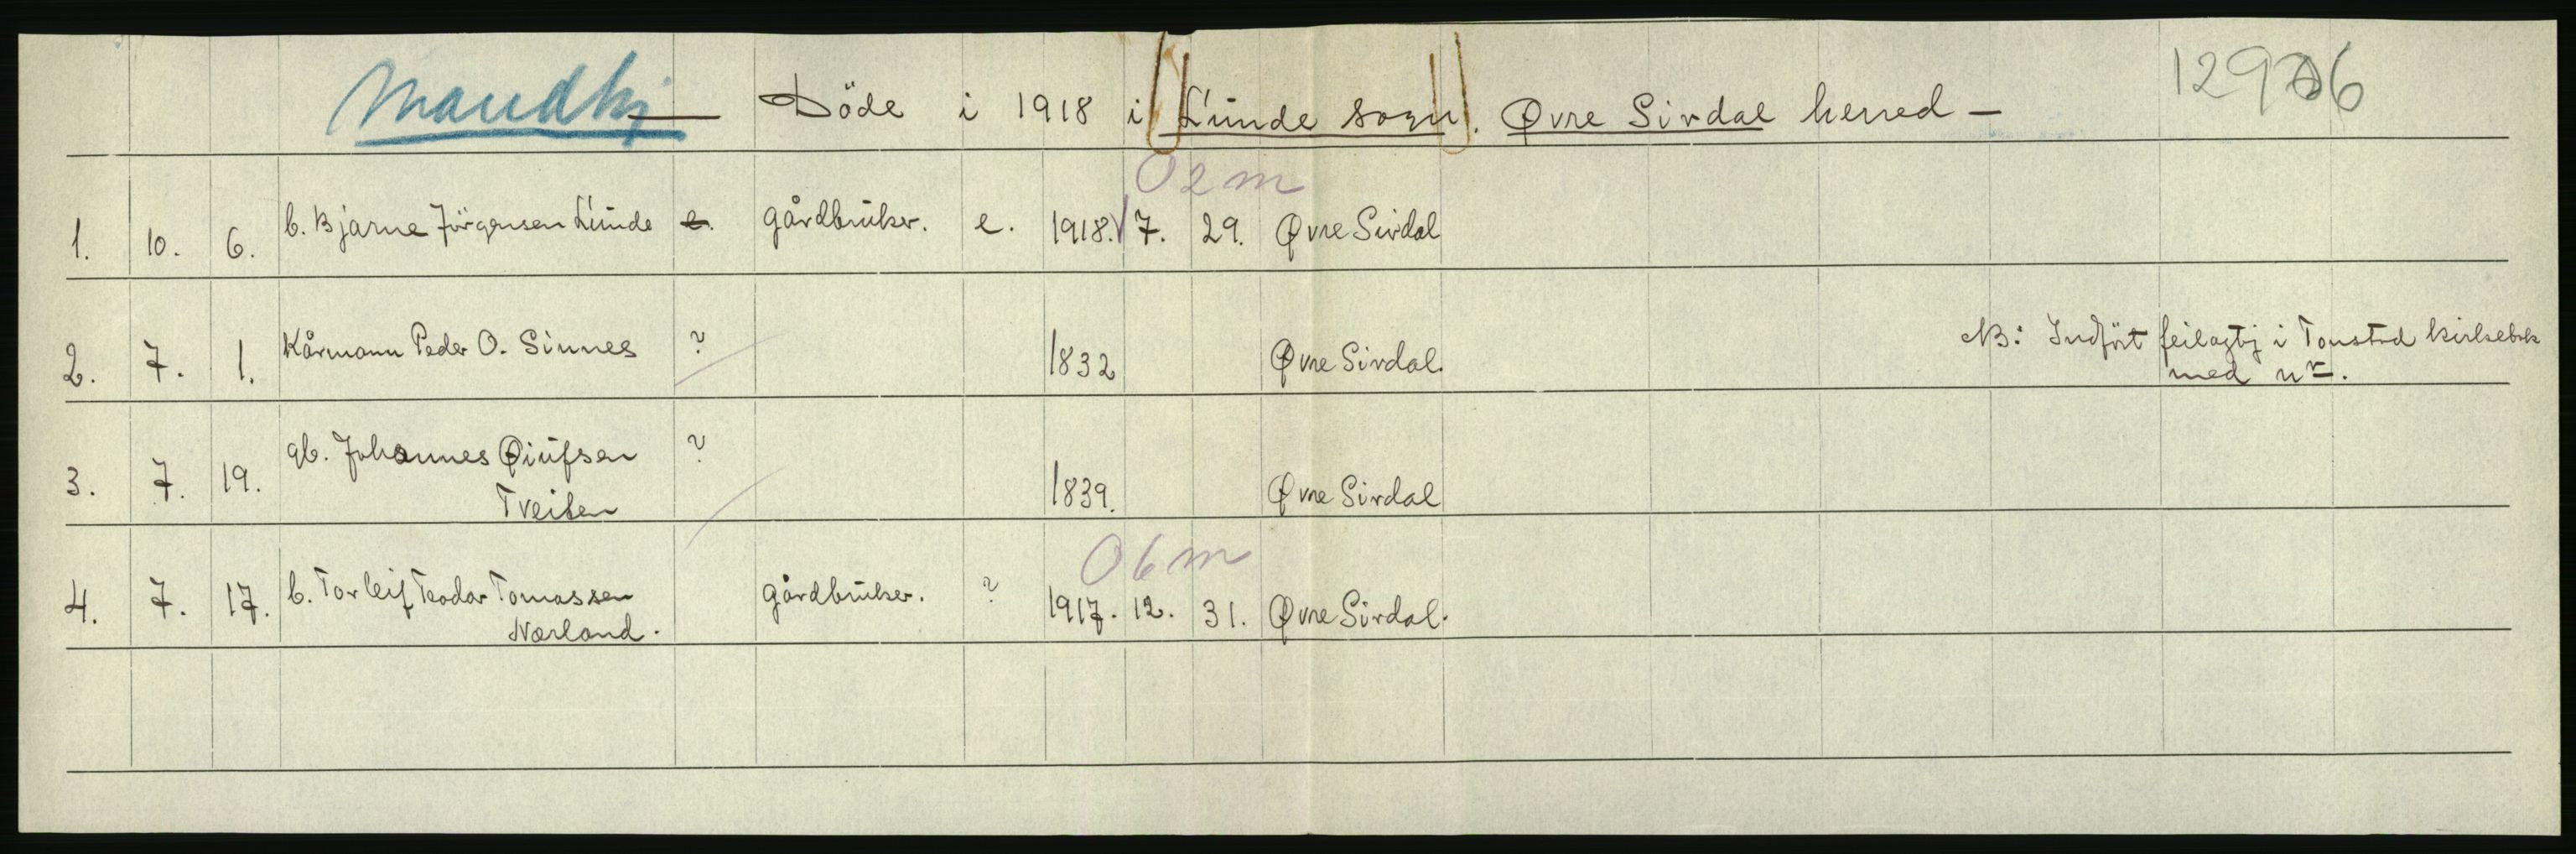 Mandkj — Döde i 1918 i Lunde sogn. Øvre Sirdal herred —
02m
1. 10. 6. b. Bjarne Jörgensen Lunde e. gårdbruker. e. 1918. 7. 29. Øvre Sirdal
2. 7. 1. Kårmann Peder O. Sinnes ? 1832 Øvre Sirdal. NB: Indfört feilagtig i Tonstad kirkebok
med nr.
3. 7. 19. gb. Johannes
Tveiten ? 1839. Øvre Sirdal
06m
4. 7. 17. b. Torleif Teodor Tomassen gårdbruker. ? 1917. 12. 31. Øvre Sirdal.
Nærland.